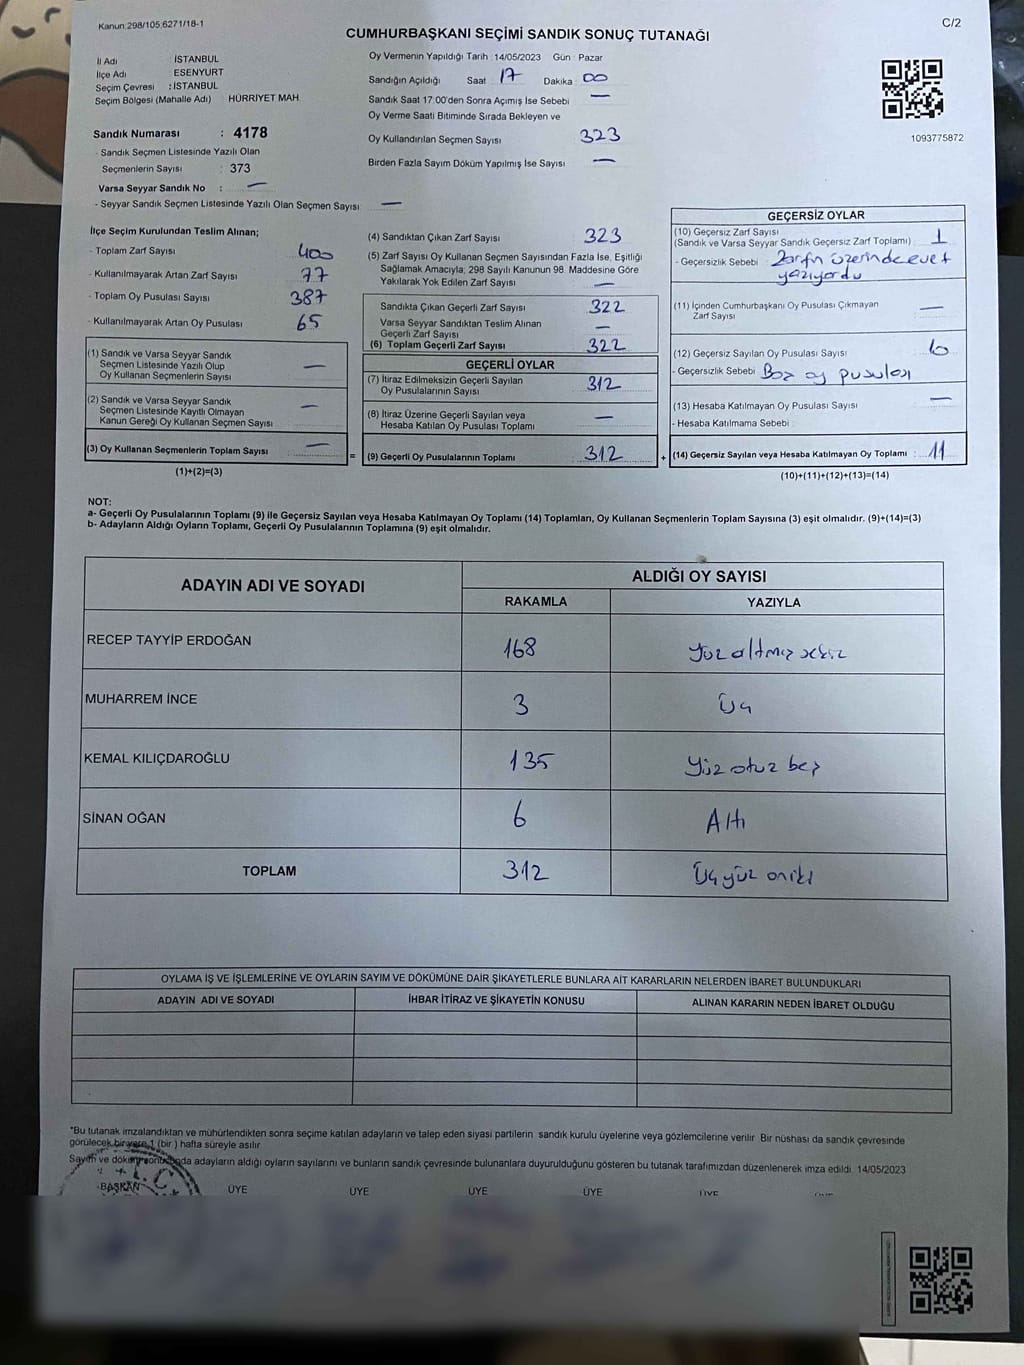 Kanun 298/105,6271/18-1
C/2
CUMHURBAŞKANI SEÇİMİ SANDIK SONUÇ TUTANAĞI
İl Adı İSTANBUL
İlçe Adı ESENYURT
Seçim Çevresi : İSTANBUL
Seçim Bölgesi (Mahalle Adı) HÜRRİYET MAH.
Sandık Numarası : 4178
- Sandık Seçmen Listesinde Yazılı Olan
Seçmenlerin Sayısı : 373
Varsa Seyyar Sandık No : —
- Seyyar Sandık Seçmen Listesinde Yazılı Olan Seçmen Sayısı —
Oy Vermenin Yapıldığı Tarih : 14/05/2023 Gün : Pazar
Sandığın Açıldığı Saat 17 Dakika 00
Sandık Saat 17:00'den Sonra Açımış İse Sebebi —
Oy Verme Saati Bitiminde Sırada Bekleyen ve
Oy Kullandırılan Seçmen Sayısı 323
Birden Fazla Sayım Döküm Yapılmış İse Sayısı —
1093775872
İlçe Seçim Kurulundan Teslim Alınan;
- Toplam Zarf Sayısı 400
- Kullanılmayarak Artan Zarf Sayısı 77
- Toplam Oy Pusulası Sayısı 387
- Kullanılmayarak Artan Oy Pusulası 65
(1) Sandık ve Varsa Seyyar Sandık
Seçmen Listesinde Yazılı Olup
Oy Kullanan Seçmenlerin Sayısı —
(2) Sandık ve Varsa Seyyar Sandık
Seçmen Listesinde Kayıtlı Olmayan
Kanun Gereği Oy Kullanan Seçmen Sayısı —
(3) Oy Kullanan Seçmenlerin Toplam Sayısı —
(1)+(2)=(3)
(4) Sandıktan Çıkan Zarf Sayısı 323
(5) Zarf Sayısı Oy Kullanan Seçmen Sayısından Fazla İse, Eşitliği
Sağlamak Amacıyla; 298 Sayılı Kanunun 98. Maddesine Göre
Yakılarak Yok Edilen Zarf Sayısı —
Sandıkta Çıkan Geçerli Zarf Sayısı 322
Varsa Seyyar Sandıktan Teslim Alınan
Geçerli Zarf Sayısı —
(6) Toplam Geçerli Zarf Sayısı 322
GEÇERLİ OYLAR
(7) İtiraz Edilmeksizin Geçerli Sayılan
Oy Pusulalarının Sayısı 312
(8) İtiraz Üzerine Geçerli Sayılan veya
Hesaba Katılan Oy Pusulası Toplamı —
= (9) Geçerli Oy Pusulalarının Toplamı 312
GEÇERSİZ OYLAR
(10) Geçersiz Zarf Sayısı
(Sandık ve Varsa Seyyar Sandık Geçersiz Zarf Toplamı) 1
- Geçersizlik Sebebi : Zarfın üzerinde evet
yazıyordu
(11) İçinden Cumhurbaşkanı Oy Pusulası Çıkmayan
Zarf Sayısı —
(12) Geçersiz Sayılan Oy Pusulası Sayısı 10
- Geçersizlik Sebebi Boz oy pusulası
(13) Hesaba Katılmayan Oy Pusulası Sayısı —
- Hesaba Katılmama Sebebi
+ (14) Geçersiz Sayılan veya Hesaba Katılmayan Oy Toplamı : 11
(10)+(11)+(12)+(13)=(14)
NOT:
a- Geçerli Oy Pusulalarının Toplamı (9) ile Geçersiz Sayılan veya Hesaba Katılmayan Oy Toplamı (14) Toplamları, Oy Kullanan Seçmenlerin Toplam Sayısına (3) eşit olmalıdır. (9)+(14)=(3)
b- Adayların Aldığı Oyların Toplamı, Geçerli Oy Pusulalarının Toplamına (9) eşit olmalıdır.
ADAYIN ADI VE SOYADI
ALDIĞI OY SAYISI
RAKAMLA YAZIYLA
RECEP TAYYİP ERDOĞAN 168 Yüz altmış sekiz
MUHARREM İNCE 3 Üç
KEMAL KILIÇDAROĞLU 135 Yüz otuz beş
SİNAN OĞAN 6 Altı
TOPLAM 312 Üçyüz oniki
OYLAMA İŞ VE İŞLEMLERİNE VE OYLARIN SAYIM VE DÖKÜMÜNE DAİR ŞİKAYETLERLE BUNLARA AİT KARARLARIN NELERDEN İBARET BULUNDUKLARI
ADAYIN ADI VE SOYADI İHBAR İTİRAZ VE ŞİKAYETİN KONUSU ALINAN KARARIN NEDEN İBARET OLDUĞU
*Bu tutanak imzalandıktan ve mühürlendikten sonra seçime katılan adayların ve talep eden siyasi partilerin sandık kurulu üyelerine veya gözlemcilerine verilir. Bir nüshası da sandık çevresinde
görülecek bir yere 1 (bir ) hafta süreyle asılır.
Sayım ve döküm sonunda adayların aldığı oyların sayılarını ve bunların sandık çevresinde bulunanlara duyurulduğunu gösteren bu tutanak tarafımızdan düzenlenerek imza edildi. 14/05/2023
BAŞKAN ÜYE ÜYE ÜYE ÜYE ÜYE
T.C.